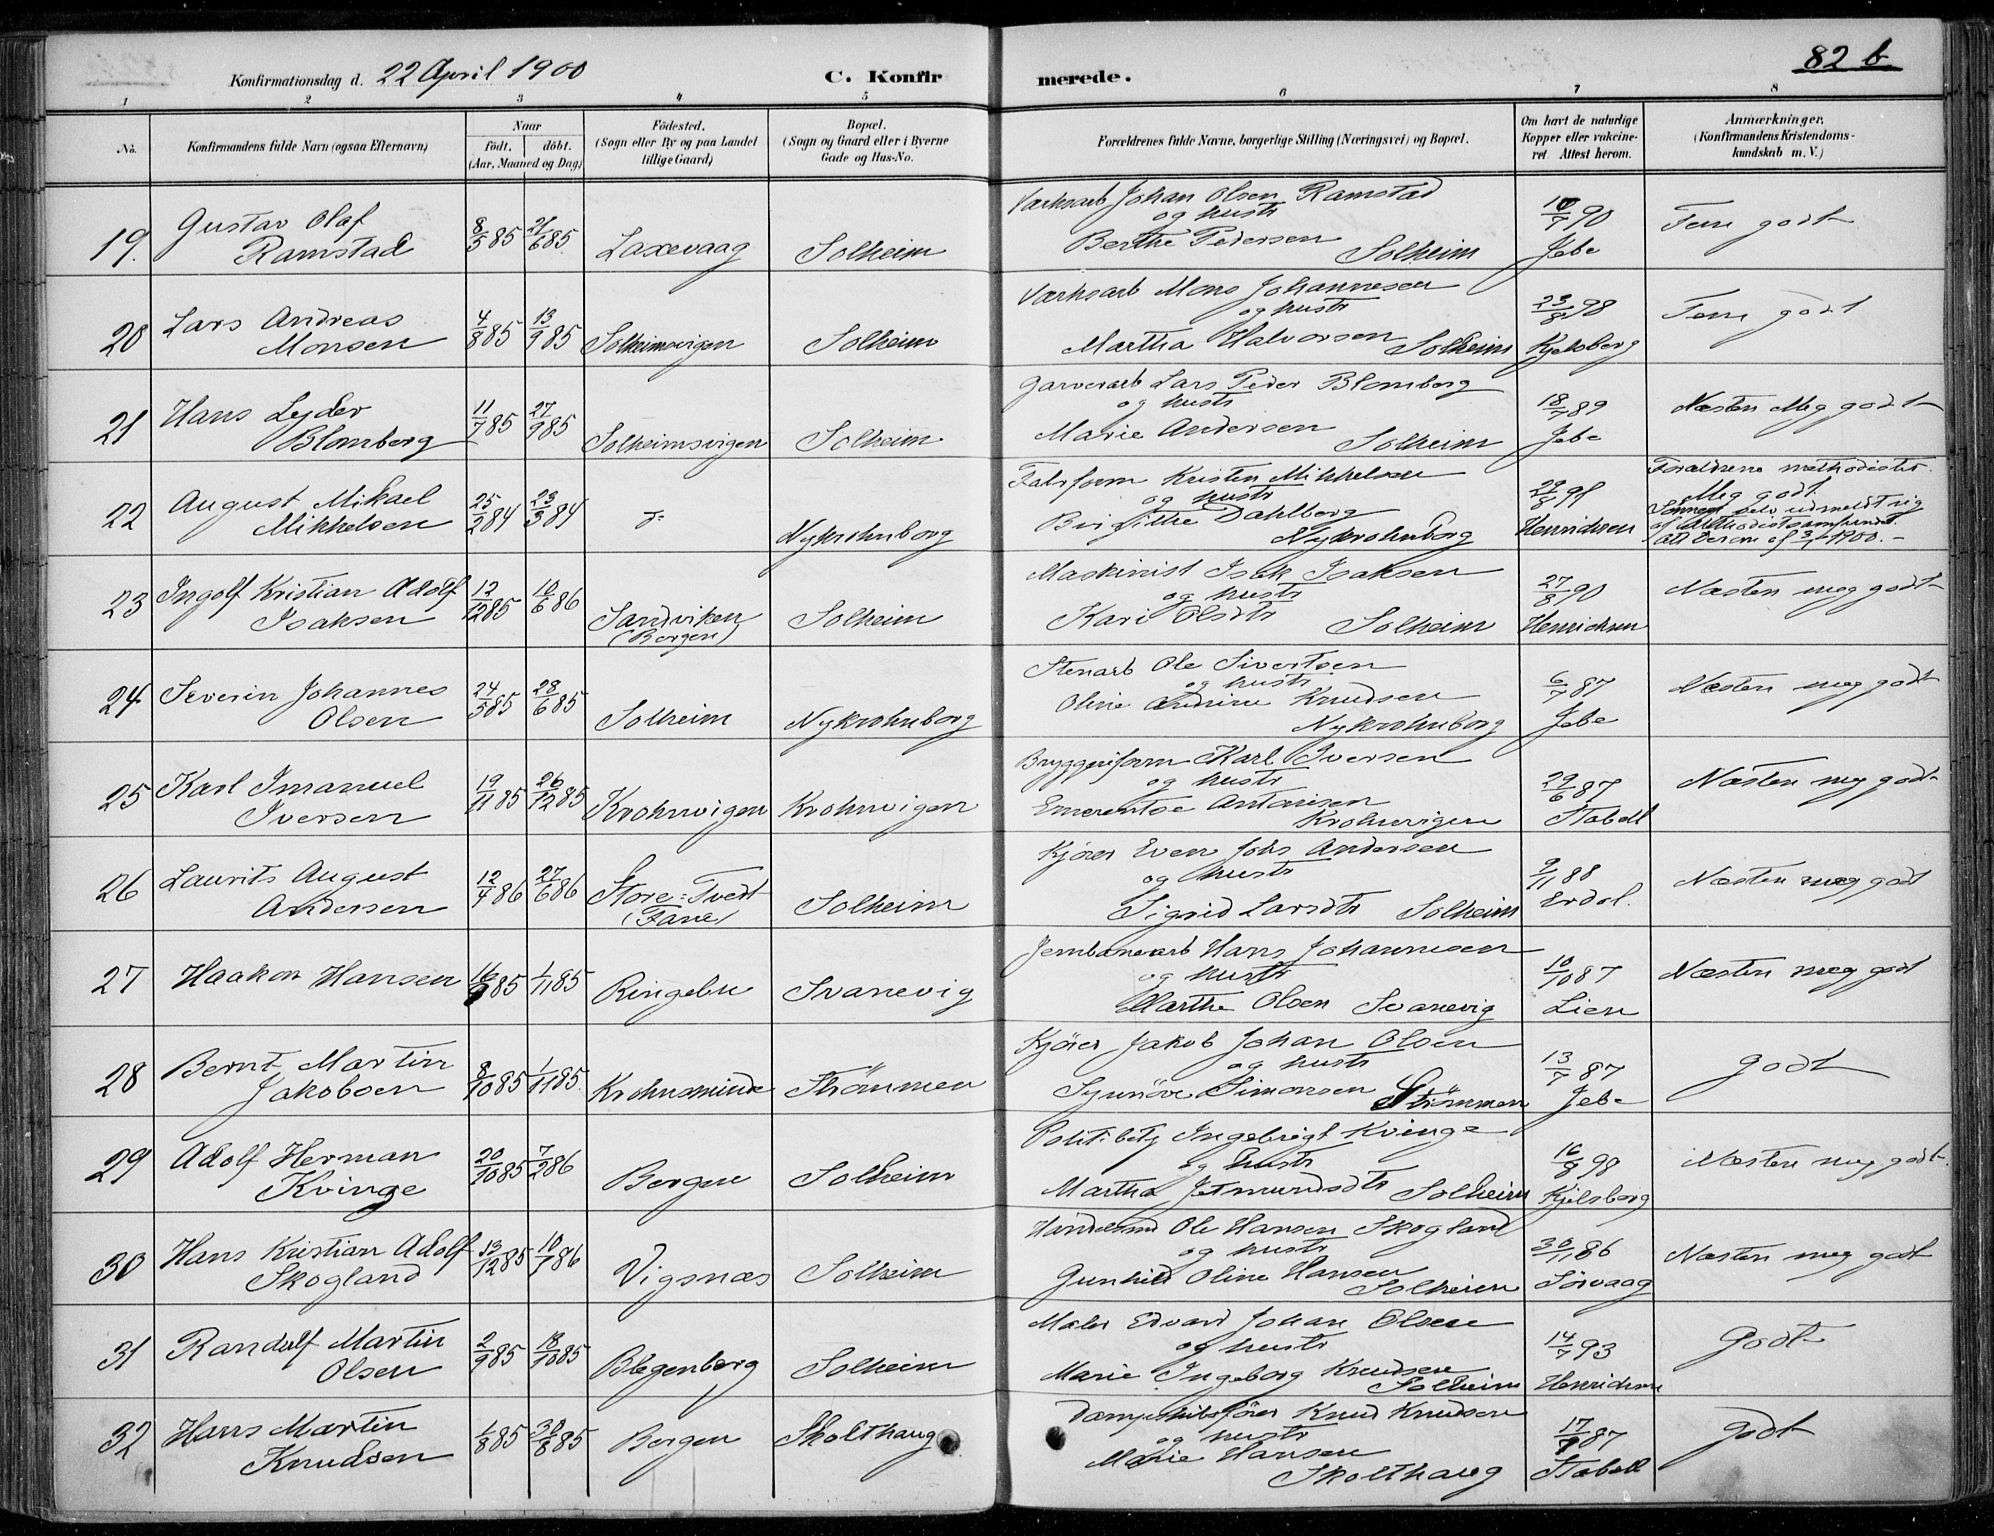 82 b.
Konfirmationsdag d. 22 April 1900
C. Konfirmerede.
1 2 3 4 5 6 7 8
No.
Konfirmandens fulde Navn (ogsaa Efternavn)
Naar
født. døbt.
(Aar, Maaned og Dag)
Födested.
(Sogn eller By og paa Landet
tillige Gaard)
Bopæl.
(Sogn og Gaard eller i Byerne
Gade og Hus-No.
Forældrenes fulde Navne, borgerlige Stilling (Næringsvei) og Bopæl.
Om havt de naturlige
Kopper eller vakcine-
ret. Attest herom.
Anmærkninger.
(Konfirmandens Kristendoms-
kundskab m. V.)
19. Gustav Olaf
Ramstad
8/5 85 21/6 85. Laxevaag Solheim
Værksarb Johan Olsen Ramstad
og hustr
Berthe Pedersen Solheim
10/7 90
Jebe
Temi godt
20 Lars Andreas
Monsen
4/8 85 13/9 85 Solheimsvigen Solheim
Værksarb Mons Johannesen
og hustr
Martha Halvorsen Solheim
23/8 98
Kjelsberg
Temi godt
21 Hans Lyder
Blomberg
11/7 85 27/9 85 Solheimsvigen Solheim
Garverarb Lars Peder Blomberg
og hustr
Marie Andersen Solheim
18/7 89
Jebe
Næsten Meg godt
22 August Mikael
Mikkelsen
25/2 84 23/3 84 Nykrohnborg
Kristen Mikkelsen
og hustr
Birgithe Dahlberg
Nykrohnborg
Henrichsen
Forældrene methodister.
Meg godt.
Sønnen selv udmeldt sig
af Methodistsamfundet.
1900.
23 Ingolf Kristian Adolf
Isaksen
12/12 85 10/6 86 Sandviken
(Bergen)
Solheim
Maskinist Isak Isaksen
og hustr
Kari Olsdtr Solheim
27/8 90
Henrichsen
Næsten meg godt
24 Severin Johannes
Olsen
24/5 85 28/6 85 Solheim Nykrohnborg
Stenarb Ole Sivertsen
og hustr
Oline Andrine Knudsen
Nykrohnborg
6/7 87
Jebe
Næsten meg godt
25 Karl Imanuel
Iversen
19/11 85 26/12 85 Krohnvigen Krohnvigen
Bryggeriform Karl Iversen
og hustr
Emerentse Antonisen
Krohnvigen
29/6 87
Stabell
Næsten meg godt
26 Laurits August
Andersen
12/4 86 27/6 86 Store-Tvedt
(Fane)
Solheim
Kjører Even Johs Andersen
og hustr
Sigrid Larsdtr Solheim
9/11 88
Erdal.
Næsten meg godt
27 Haakon Hansen 16/9 85 1/11 85 Ringebu Svanevig
Jernbanearb Hans Johannesen
og hustr
Marthe Olsen Svanevig
10/10 87
Lien
Næsten meg godt
28 Bernt Martin
Jakobsen
8/10 85 1/11 85. Krohnsminde Strømmen
Kjører Jakob Johan Olsen
og hustr
Synnöve Simonsen Strømmen
13/7 87
Jebe
Godt
29 Adolf Herman
Kvinge
20/10 85 7/2 86 Bergen Solheim
Politibetj Ingebrigt Kvinge
og hustr
Martha Jetmundsdtr Solheim
16/8 98
Kjelsberg
Næsten meg godt.
30 Hans Kristian Adolf
Skogland
13/12 85 10/1 86 Vigsnæs Solheim
Ole Hansen Skogland
og hustr
Gunhild Oline Hansen
Solheim
30/11 86
Sörvaag
Næsten meg godt
31 Randulf Martin
Olsen
2/9 85 18/10 85 Blegenberg Solheim
Maler Edvard Johan Olsen
og hustr
Marie Ingeborg Knudsen
Solheim
14/7 93
Henrichsen
Godt
32 Hans Martin
Knudsen
1/8 85 30/8 85 Bergen Skolthaug
Dampskibsfører Knud Knudsen
og hustr
Marie Hansen
Skolthaug
87
Stabell
Godt